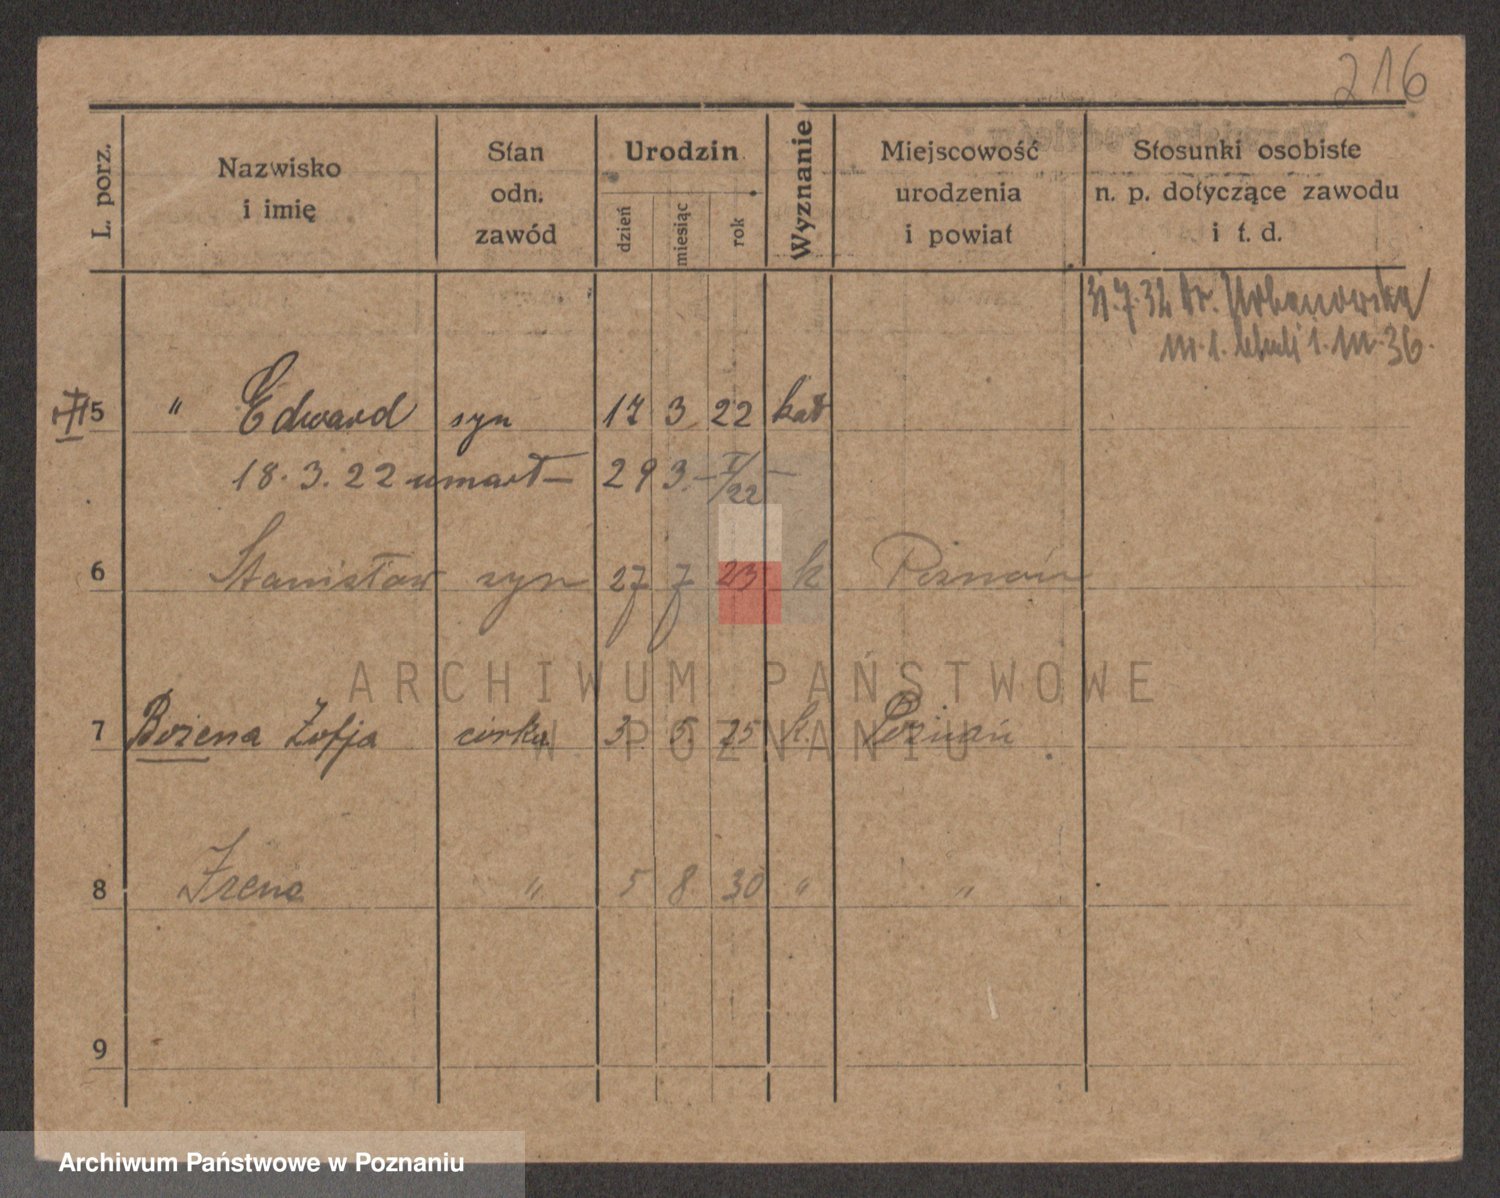 216
L. porz.
Nazwisko
i imię
Stan
odn.
zawód
Urodzin
dzień
miesiąc
rok
Wyznanie
Miejscowość
urodzenia
i powiat
Stosunki osobiste
n. p. dotyczące zawodu
i t. d.
31.7.32 Urbanowska
1. 36.
5 " Edward syn 17 3 22 kat
18.3.22 umarł — 29 3. — /22 —
6 Stanisław syn 27 7 23 k Poznań
ARCHIWUM PAŃSTWOWE
W POZNANIU
7 Bożena Zofja córka 3. 5. 25 k. Poznań
8 Irena " 5 8 30 " "
9
Archiwum Państwowe w Poznaniu